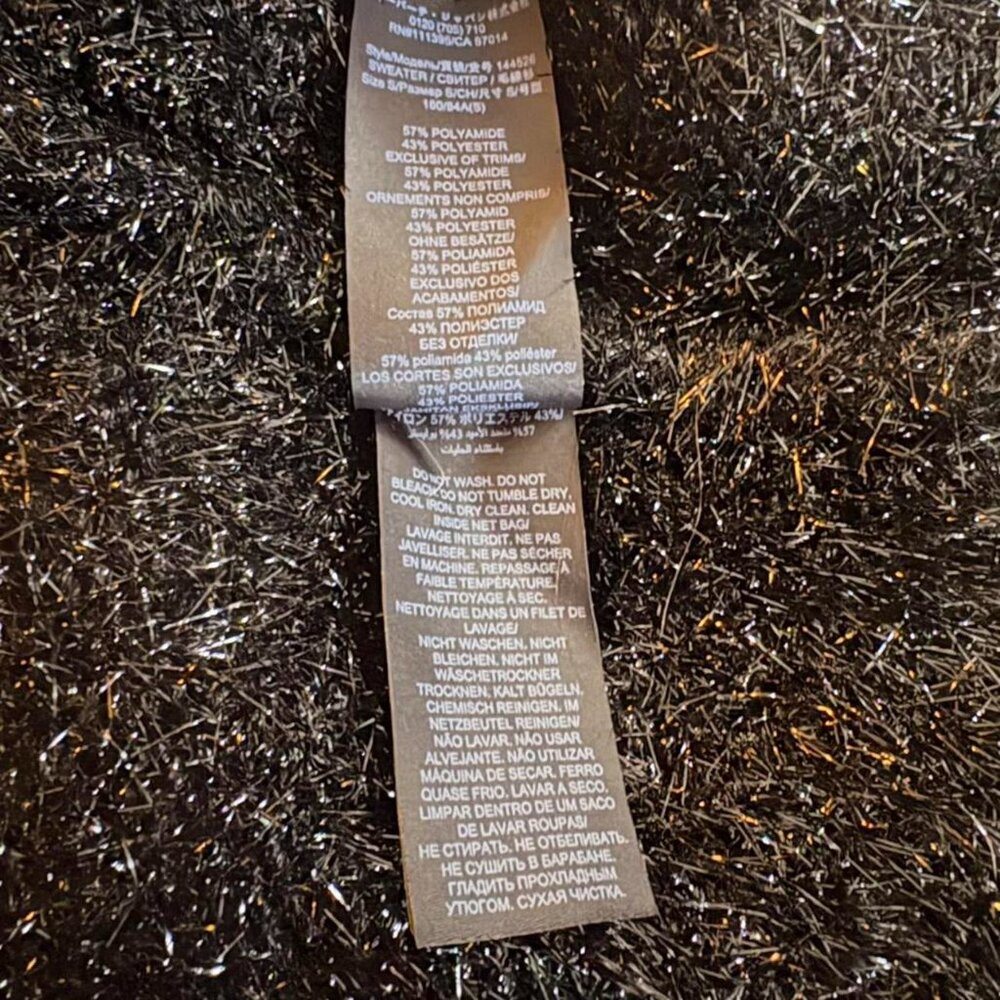 ーバーチ・ジャパン株式会社
0120 (705) 710
RN#111395/CA 57014
Style/Модель/貨號/款号 144526
SWEATER / СВИТЕР / 毛織衫
Size S/Размер S/CH/尺寸 S/号型
160/84A(S)
57% POLYAMIDE
43% POLYESTER
EXCLUSIVE OF TRIMS/
57% POLYAMIDE
43% POLYESTER
ORNEMENTS NON COMPRIS/
57% POLYAMID
43% POLYESTER
OHNE BESÄTZE/
57% POLIAMIDA
43% POLIÉSTER
EXCLUSIVO DOS
ACABAMENTOS/
Состав 57% ПОЛИАМИД
43% ПОЛИЭСТЕР
БЕЗ ОТДЕЛКИ/
57% poliamida 43% poliéster
LOS CORTES SON EXCLUSIVOS/
57% POLIAMIDA
43% POLIESTER
イロン 57% ポリエステル 43%/
DO NOT WASH. DO NOT
BLEACH. DO NOT TUMBLE DRY.
COOL IRON. DRY CLEAN. CLEAN
INSIDE NET BAG/
LAVAGE INTERDIT. NE PAS
JAVELLISER. NE PAS SÉCHER
EN MACHINE. REPASSAGE À
FAIBLE TEMPÉRATURE.
NETTOYAGE À SEC.
NETTOYAGE DANS UN FILET DE
LAVAGE/
NICHT WASCHEN. NICHT
BLEICHEN. NICHT IM
WÄSCHETROCKNER
TROCKNEN. KALT BÜGELN.
CHEMISCH REINIGEN. IM
NETZBEUTEL REINIGEN/
NÃO LAVAR. NÃO USAR
ALVEJANTE. NÃO UTILIZAR
MÁQUINA DE SECAR. FERRO
QUASE FRIO. LAVAR A SECO.
LIMPAR DENTRO DE UM SACO
DE LAVAR ROUPAS/
НЕ СТИРАТЬ. НЕ ОТБЕЛИВАТЬ.
НЕ СУШИТЬ В БАРАБАНЕ.
ГЛАДИТЬ ПРОХЛАДНЫМ
УТЮГОМ. СУХАЯ ЧИСТКА.